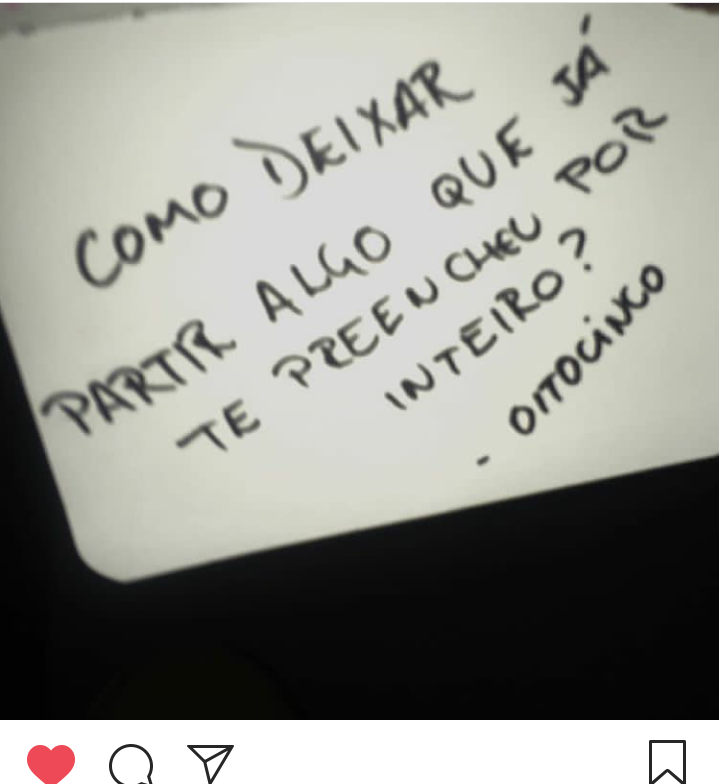 COMO DEIXAR
PARTIR ALGO QUE JÁ
TE PREENCHEU POR
INTEIRO?
- OITOCINCO